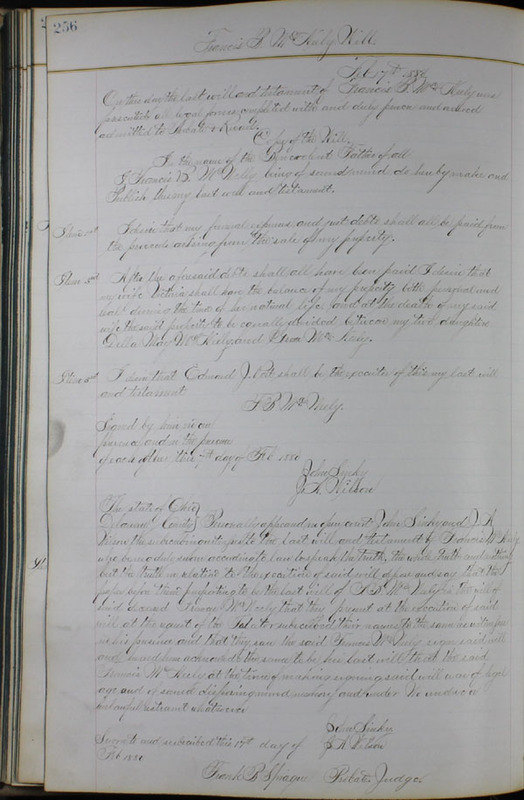 256
Francis B. McKeely Will.
Feb 17th 1880
On this day the last will and testament of Francis B. McKeely was
presented all legal forms complied with and duly proven and ordered
admitted to Probate & Record.
Copy of the Will.
In the name of the Benevolent Father of all
I Francis B. McKeely being of sound mind do hereby make and
Publish this my last will and testament.
Item 1st I desire that my funeral expenses and just debts shall all be paid from
the proceeds arising from the sale of my property.
Item After the aforesaid debts shall all have been paid I desire that
my wife shall have the balance of my property both personal and
real during the time of her natural life and at the death of my said
wife the said property to be equally divided between my two daughters
Della May McKeely and McKeely.
Item I desire that Edward J. shall be the executor of this my last will
and testament
F B McKeely.
Signed by him in our
presence and in the presence
of each other this day of Feb 1880
John
J. K. Wilson
The State of Ohio
County Personally appeared in open court John and J K
Wilson the subscribing witnesses to the last will and testament of Francis McKeely
who being duly sworn according to law to speak the truth, the whole truth and nothing
but the truth in relation to the execution of said will depose and say that the
paper before them purporting to be the last will of F. B. McKeely is the will of
said McKeely that they were present at the execution of said
will at the request of the Testator subscribed their names to the same as witnesses
in his presence and that they saw the said Francis McKeely sign said will
and heard him acknowledge the same to be his last will that the said
Francis McKeely at the time of making signing said will was of legal
age and of sound disposing mind memory and under no undue or
unlawful restraint whatsoever
John
J K Wilson
Sworn to and subscribed this 17th day of
Feb 1880
Frank B Sprague Probate Judge